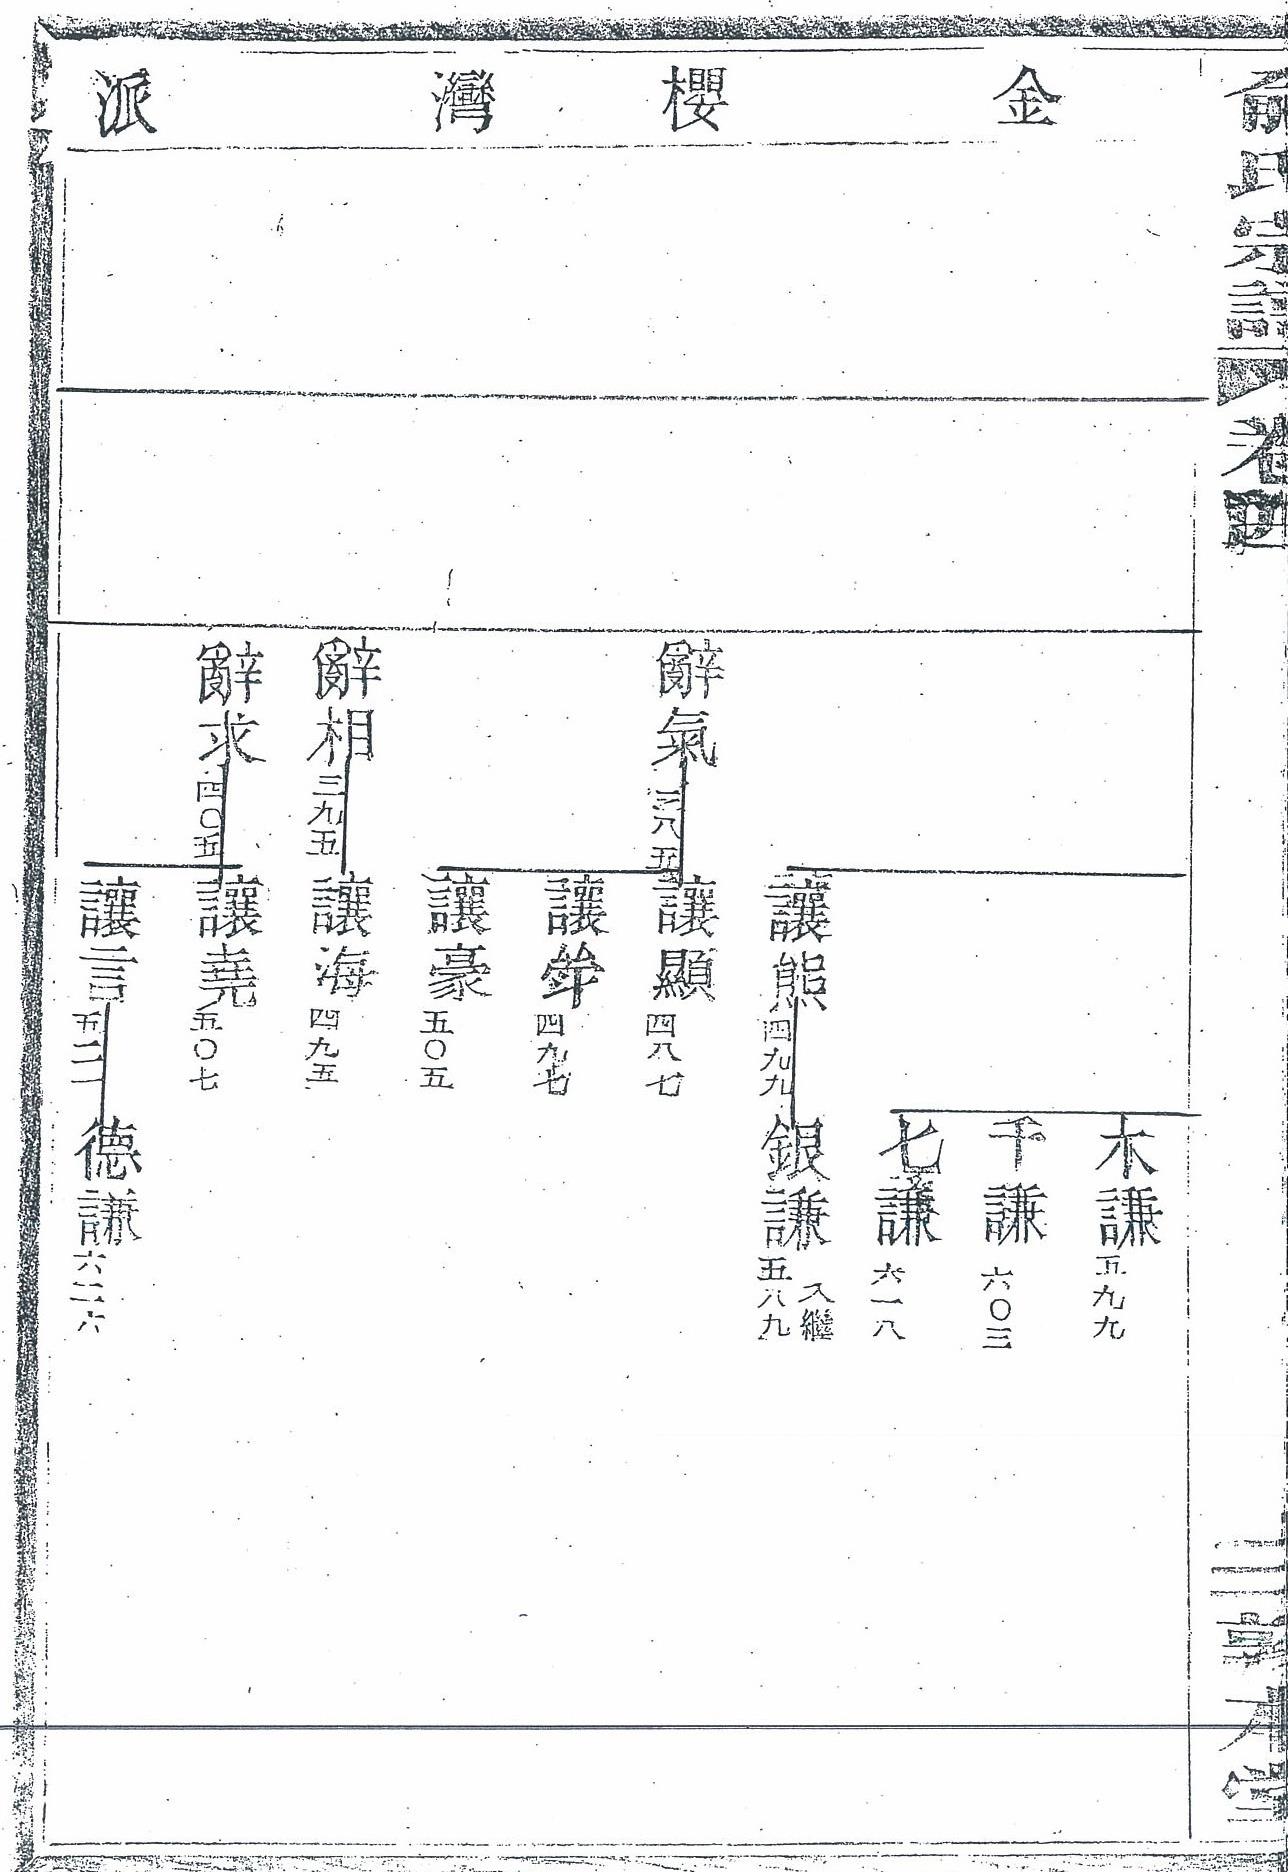 俞氏宗譜
卷四
三
堂
金櫻灣派
木謙
五九九
千謙
六〇三
七謙
六一八
讓熊
四九九
銀謙
入繼
五八九
辭氣
三八五
讓顯
四八七
讓
四九七
讓豪
五〇五
辭相
三九五
讓海
四九五
辭求
四〇五
讓堯
五〇七
讓言
德謙
六二六